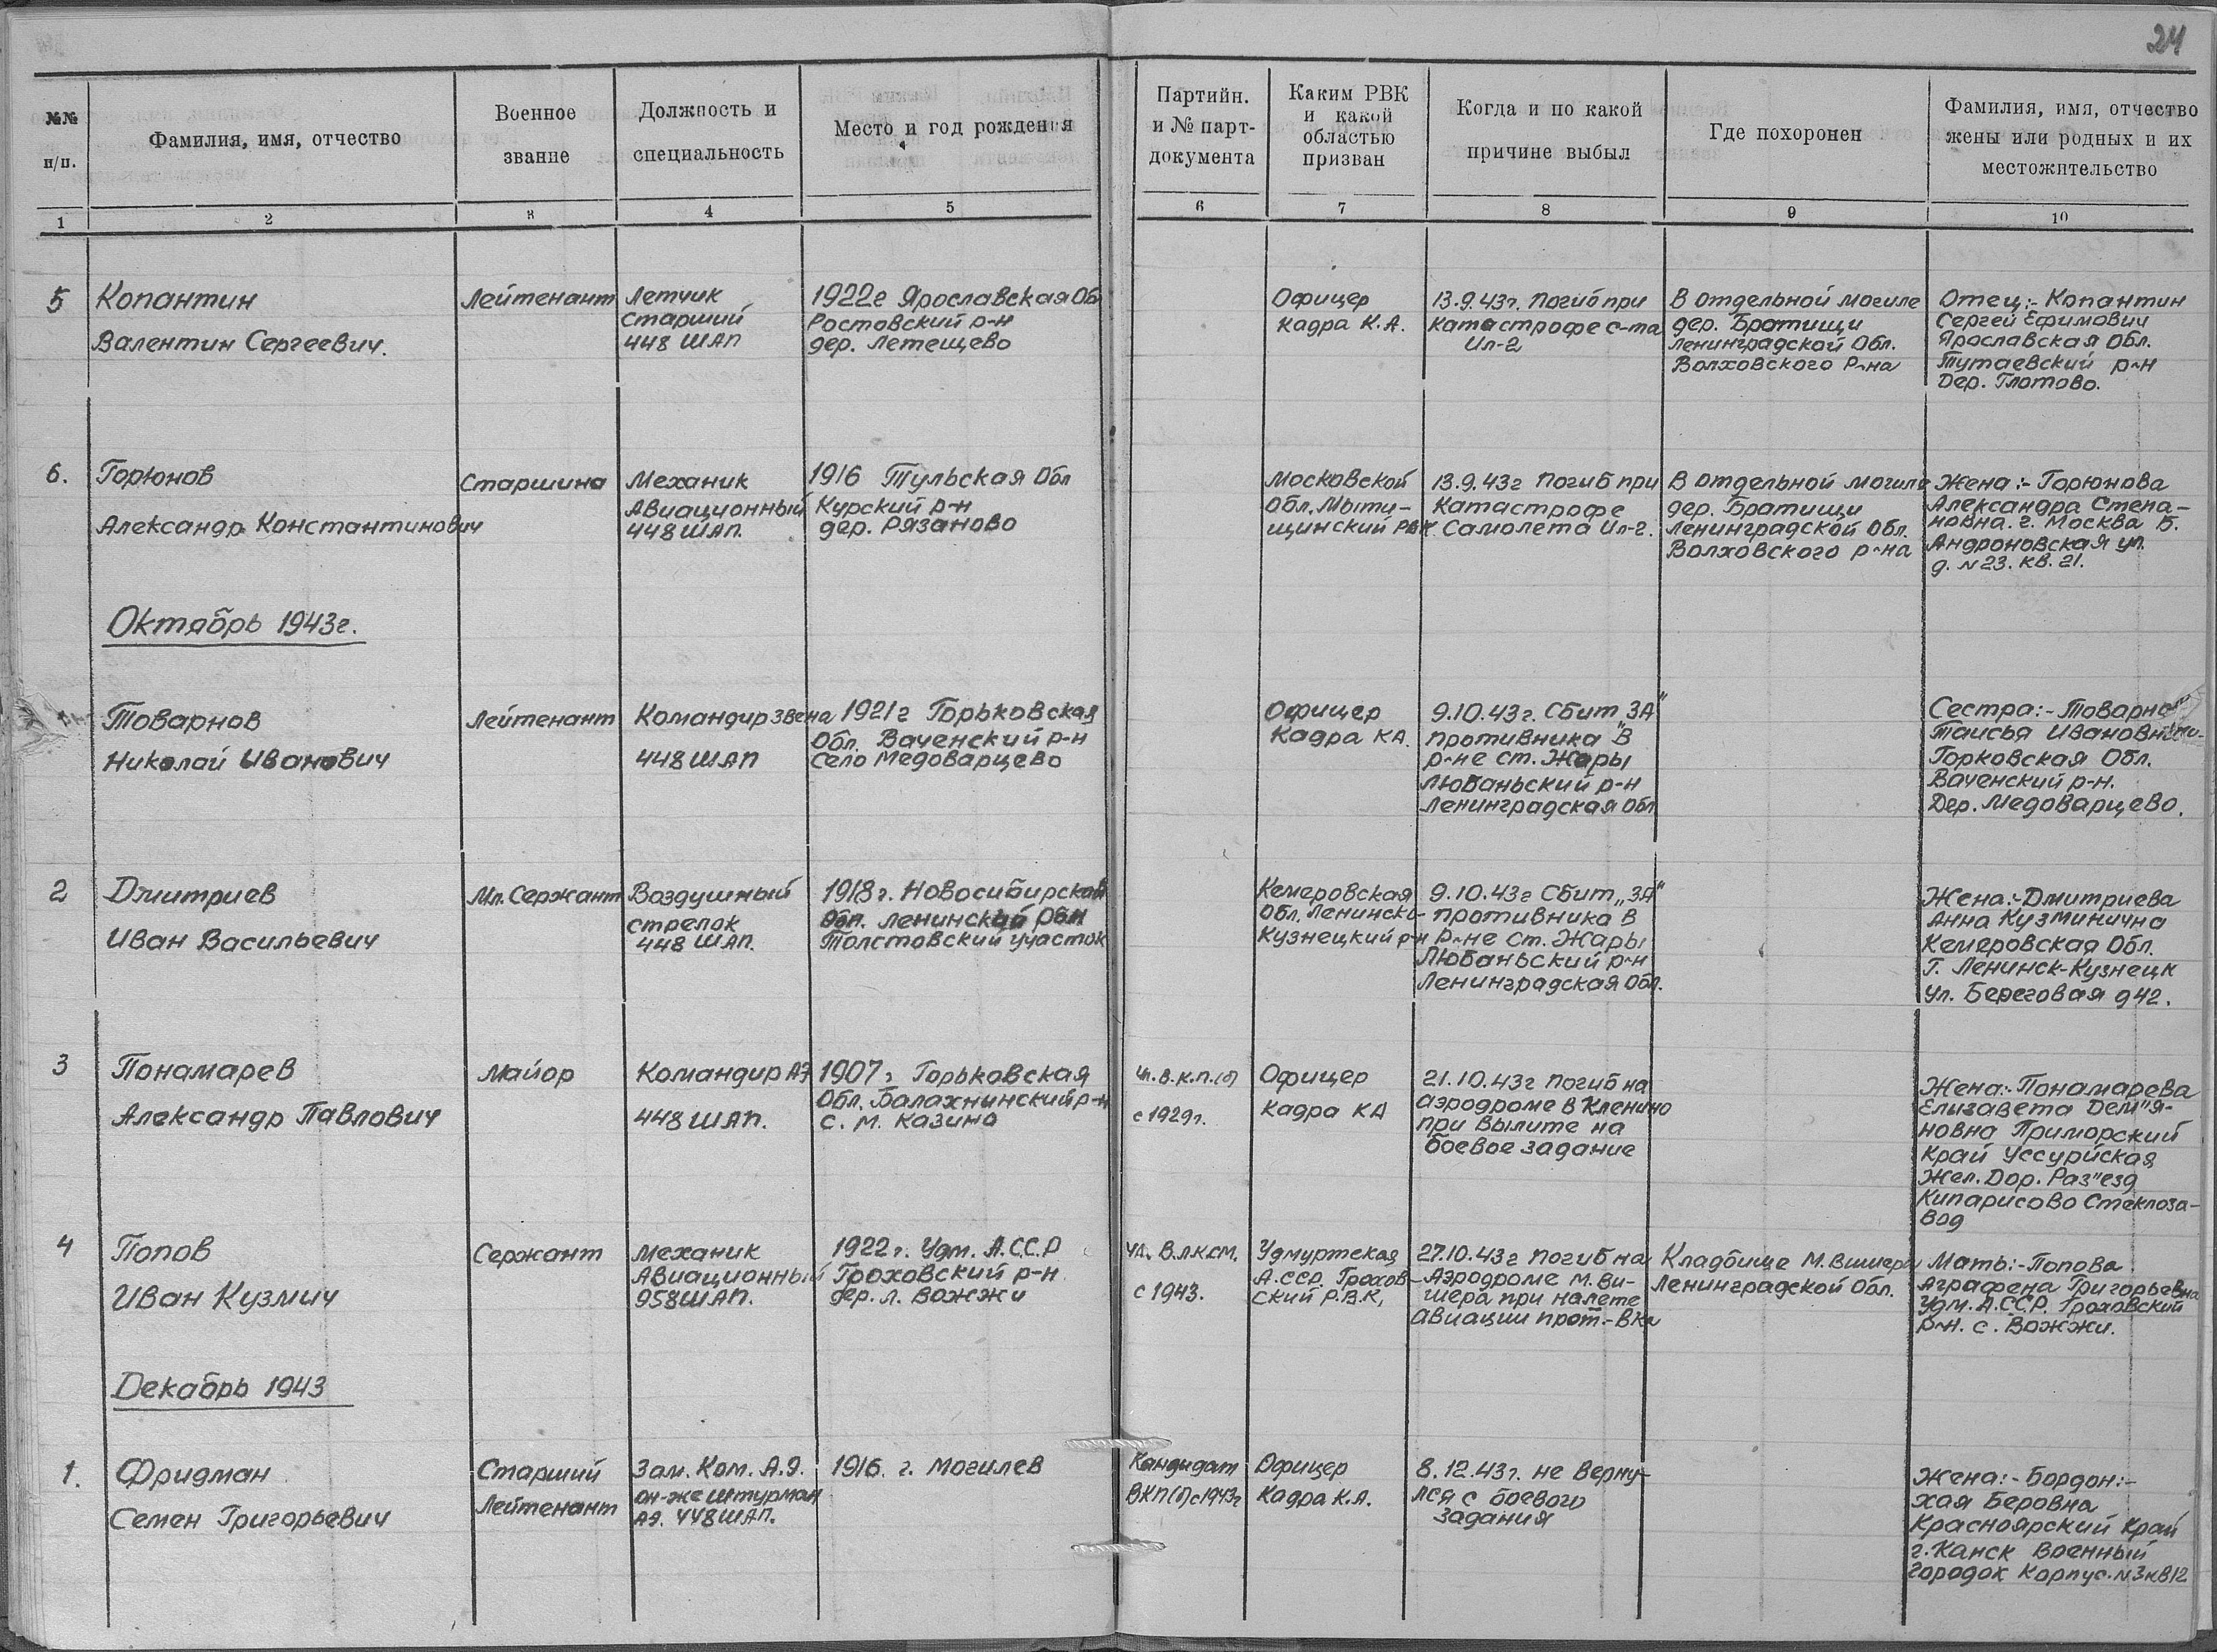 24
№№
п/п.
Фамилия, имя, отчество
Военное
звание
Должность и
специальность
Место и год рождения
Партийн.
и № парт-
документа
Каким РВК
и какой
областью
призван
Когда и по какой
причине выбыл
Где похоронен
Фамилия, имя, отчество
жены или родных и их
местожительство
1
2
3
4
5
6
7
8
9
10
5
Копантин
Валентин Сергеевич.
Лейтенант
Летчик
Старший
448 ШАП
1922г Ярославская Обл
Ростовский р-н
дер. Летещево
Офицер
кадра К.А.
13.9.43г. Погиб при
катастрофе с-та
Ил-2
В отдельной могиле
дер. Братищи
Ленинградской Обл.
Волховского Р-на
Отец:- Копантин
Сергей Ефимович
Ярославская Обл.
Тутаевский р-н
Дер. Глотово.
6.
Горюнов
Александр Константинович
Старшина
Механик
Авиационный
448 ШАП.
1916 Тульская Обл
Курский р-н
дер. Рязаново
Московской
Обл. Мыти-
щинский РВК
13.9.43г Погиб при
Катастрофе
Самолета Ил-2.
В отдельной могиле
дер. Братищи
Ленинградской Обл.
Волховского р-на
Жена:- Горюнова
Александра Степа-
новна. г. Москва Б.
Андроновская ул.
д. №23. кв. 21.
Октябрь 1943г.
Товарнов
Николай Иванович
Лейтенант
Командир звена
448 ШАП
1921г Горьковская
Обл. Ваченский р-н
Село Медоварцево
Офицер
Кадра КА.
9.10.43г. Сбит ЗА"
противника "В
р-не ст. Жары
Любаньский р-н
Ленинградская обл
Сестра:- Товарно
Таисья Ивановн
Горковская Обл.
Ваченский р-н.
Дер. Медоварцево.
2
Дмитриев
Иван Васильевич
Мл. Сержант
Воздушный
стрелок
448 ШАП.
1918г. Новосибирская
Обл. Ленинский р-н
Толстовский участок
Кемеровская
Обл. Ленинско-
Кузнецкий р-н
9.10.43г Сбит „ЗА"
противника В
р-не ст. Жары
Любаньский р-н
Ленинградская Обл.
Жена:- Дмитриева
Анна Кузминична
Кемеровская Обл.
Г. Ленинск-Кузнецк
Ул. Береговая д42.
3
Понамарев
Александр Павлович
Майор
Командир АЭ
448 ШАП.
1907г Горьковская
Обл. Балахнинский р-н
с. м. Казино
Чл. В.К.П.(б)
с 1929г.
Офицер
кадра КА
21.10.43г погиб на
аэродроме в Кленино
при вылите на
боевое задание
Жена:- Понамарева
Елизавета Дем"я-
новна Приморский
Край Уссурйская
Жел. Дор. Раз"езд
Кипарисово Стеклоза-
вод
4
Попов
Иван Кузмич
Сержант
Механик
Авиационный
958 ШАП.
1922г. Удм. А.С.С.Р
Гроховский р-н
дер. л. Вожжи
Чл. В.Л.К.С.М.
с 1943.
Удмуртская
А.ССР. Грохов-
ский Р.В.К,
27.10.43г погиб на
Аэродроме М. Ви-
шера при налете
авиации прот.-вка
Кладбище М. Вишера
Ленинградской Обл.
Мать:- Попова
Аграфена Григорьевна
Удм. А.ССР. Гроховский
р-н. с. Вожжи.
Декабрь 1943
1.
Фридман
Семен Григорьевич
Старший
Лейтенант
Зам. Ком. А.Э.
он-же штурман
АЭ. 448 ШАП.
1916. г. Могилев
Кандидат
ВКП(б) с 1943г
Офицер
Кадра К.А.
8.12.43г. не верну-
лся с боевого
задания
Жена:- Бордон:-
хая Беровна
Красноярский Край
г. Канск Военный
Городок Корпус. №3 кв12